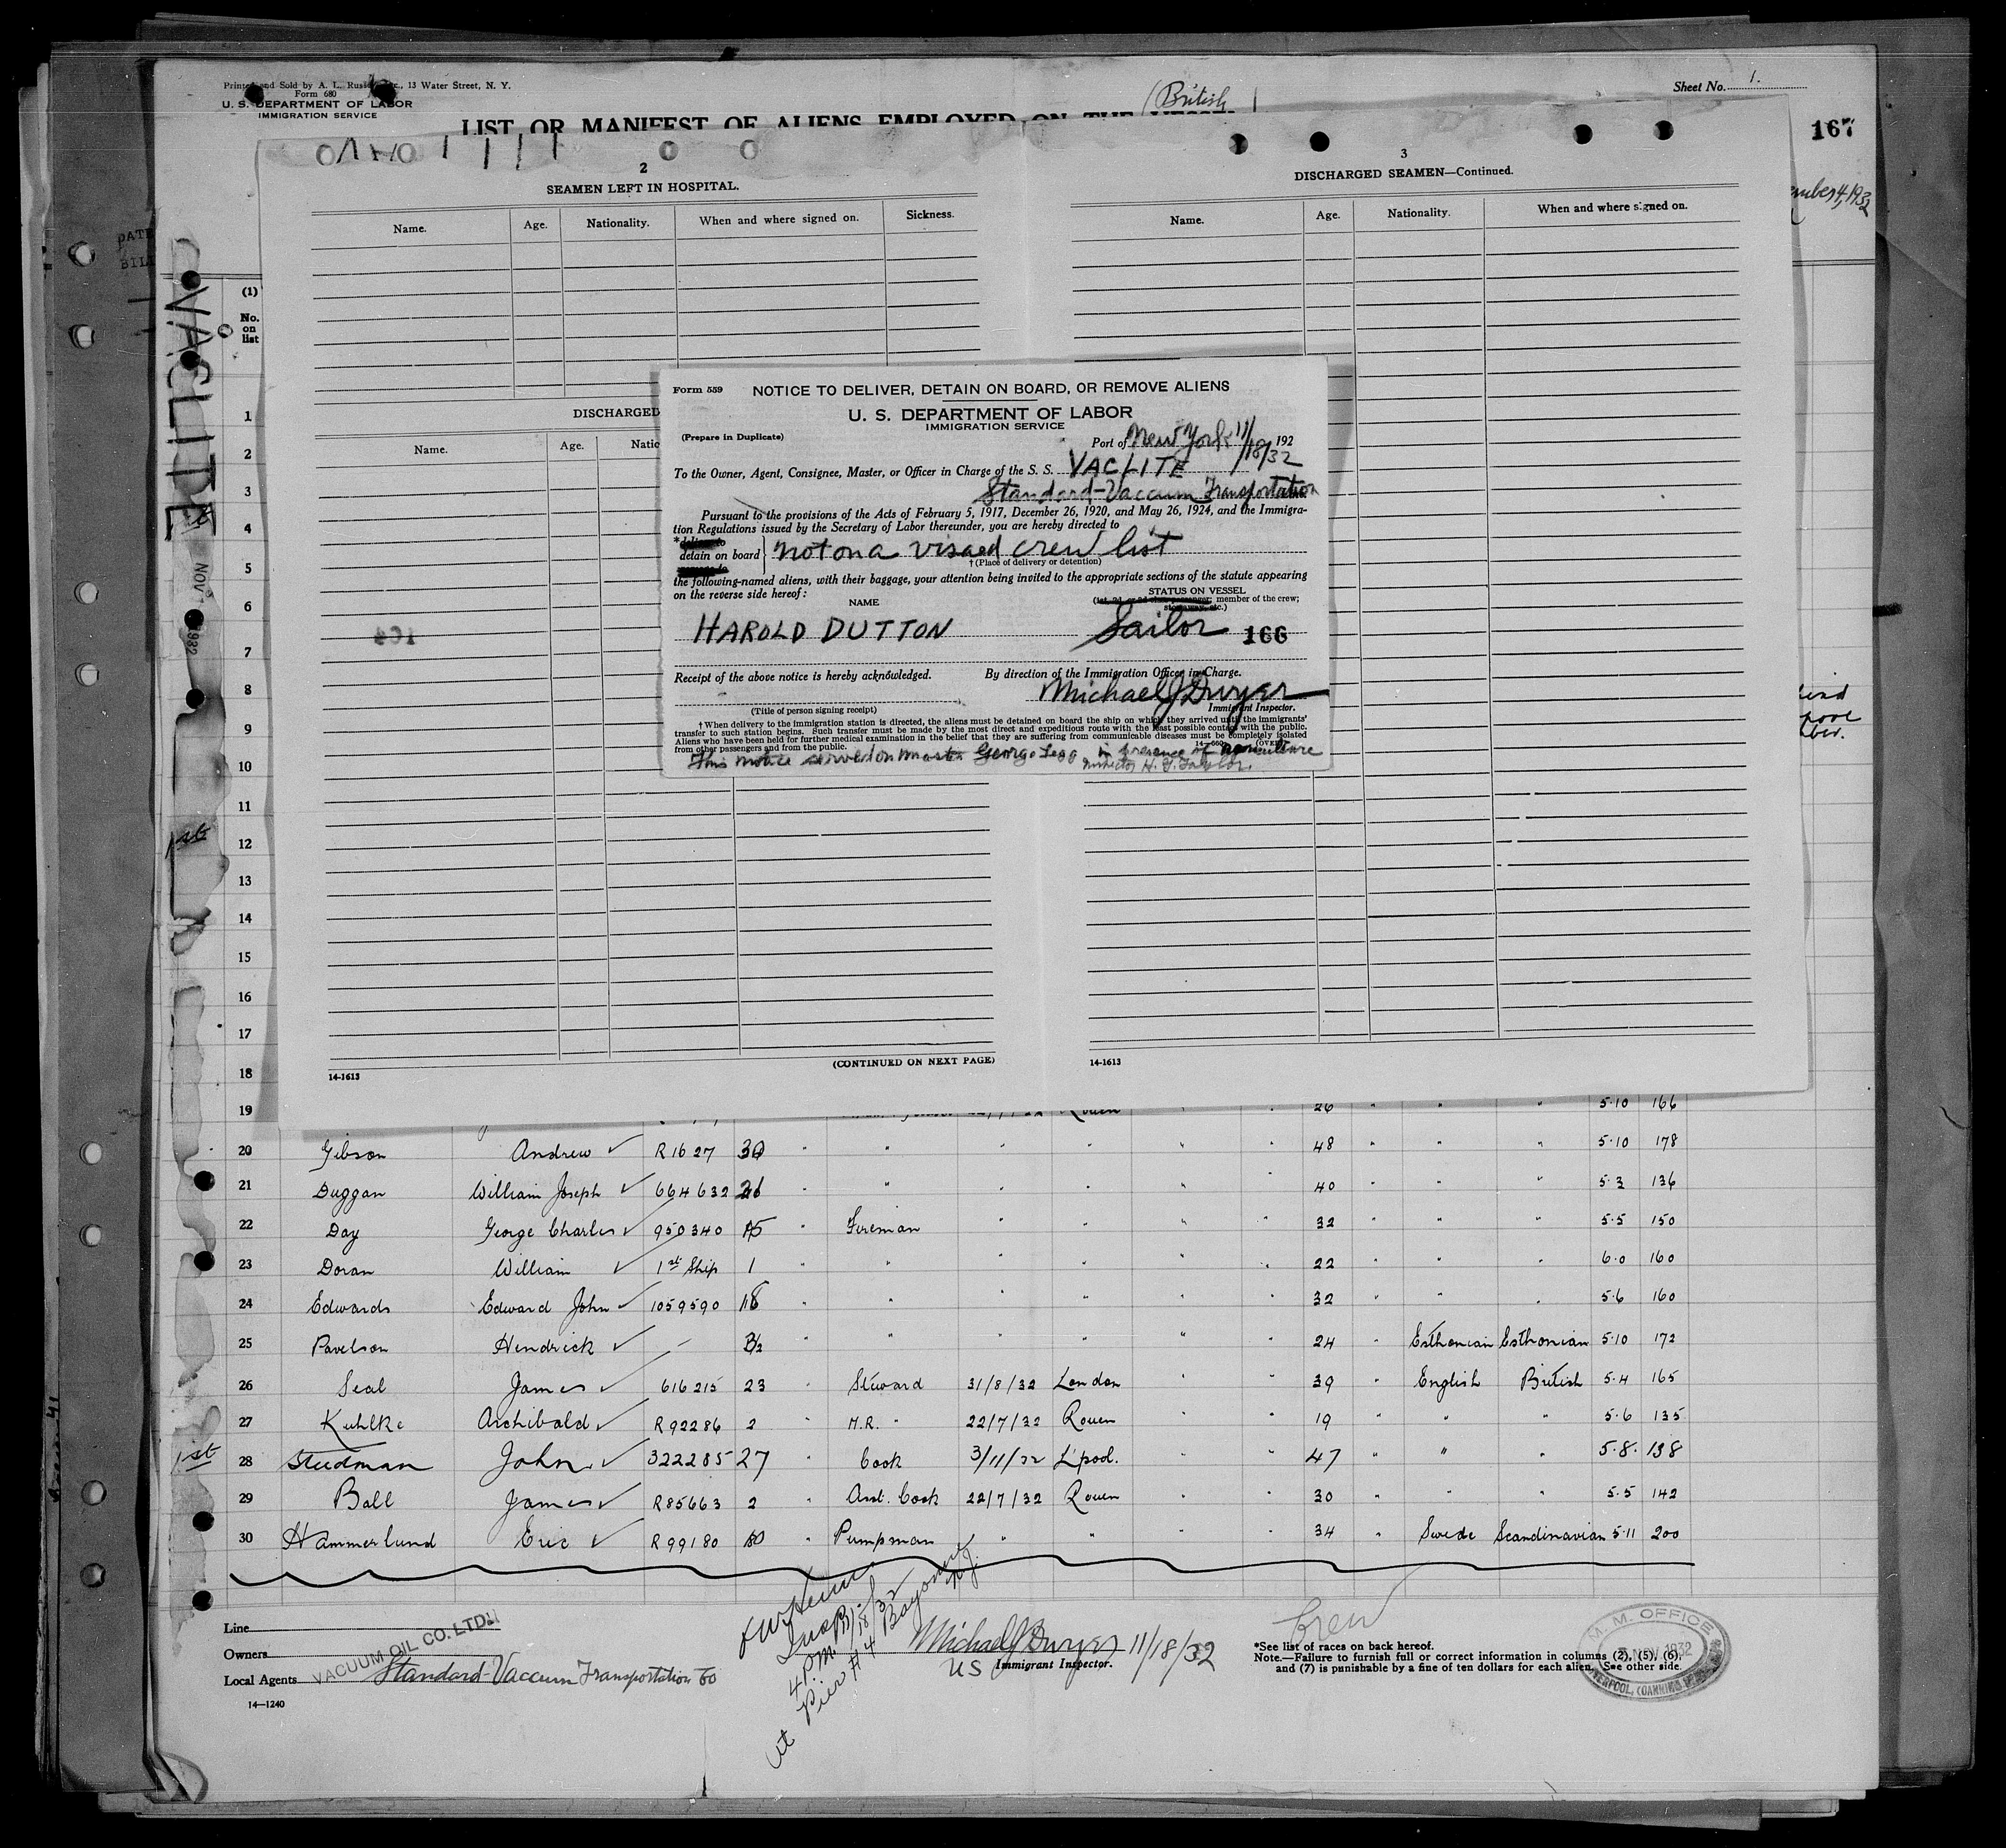 Printed and Sold by A. L. Rus, 13 Water Street, N. Y.
Form 680
U. S. DEPARTMENT OF LABOR
IMMIGRATION SERVICE
LIST OR MANIFEST OF ALIENS EMPLOYED ON THE VESSEL
(British
Sheet No. 1.
167
VACLITE
2
SEAMEN LEFT IN HOSPITAL.
Name. Age. Nationality. When and where signed on. Sickness.
DISCHARGED
Name. Age. Natio
3
DISCHARGED SEAMEN—Continued.
Name. Age. Nationality. When and where signed on.
Form 559
NOTICE TO DELIVER, DETAIN ON BOARD, OR REMOVE ALIENS
U. S. DEPARTMENT OF LABOR
IMMIGRATION SERVICE
(Prepare in Duplicate)
Port of New York 11/18/32 192
To the Owner, Agent, Consignee, Master, or Officer in Charge of the S. S. VACLITE
Standard-Vaccum Transportation
Pursuant to the provisions of the Acts of February 5, 1917, December 26, 1920, and May 26, 1924, and the Immigra-
tion Regulations issued by the Secretary of Labor thereunder, you are hereby directed to
detain on board } not on a visaed crew list
† (Place of delivery or detention)
the following-named aliens, with their baggage, your attention being invited to the appropriate sections of the statute appearing
on the reverse side hereof:
NAME
STATUS ON VESSEL
(1st, 2d, or 3d class passenger; member of the crew;
stowaway, etc.)
HAROLD DUTTON Sailor 166
Receipt of the above notice is hereby acknowledged.
By direction of the Immigration Officer in Charge.
Michael J Dwyer
(Title of person signing receipt)
Immigrant Inspector.
† When delivery to the immigration station is directed, the aliens must be detained on board the ship on which they arrived until the immigrants'
transfer to such station begins. Such transfer must be made by the most direct and expeditious route with the least possible contact with the public.
Aliens who have been held for further medical examination in the belief that they are suffering from communicable diseases must be completely isolated
from other passengers and from the public.
(OVER)
This notice served on master George Legg in presence of agriculture
inspector H. F. Taylor.
(CONTINUED ON NEXT PAGE)
14-1613
14-1613
(1)
No.
on
list
1
2
3
4
5
6
7
8
9
10
11
1st 12
13
14
15
16
17
18
19 26 " " " 5·10 166
20 Gibson Andrew ✓ R1627 30 " " " " " " 48 " " " 5·10 178
21 Duggan William Joseph ✓ 664632 21 " " " " " " 40 " " " 5·3 136
22 Day George Charles ✓ 950340 15 " Fireman " " " " 32 " " " 5·5 150
23 Doran William ✓ 1st Ship 1 " " " " " " 22 " " " 6·0 160
24 Edwards Edward John ✓ 1059590 18 " " " " " " 32 " " " 5·6 160
25 Pavelson Hendrick ✓ - " " " " " " 24 " Esthonian Esthonian 5·10 172
26 Seal James ✓ 616215 23 " Steward 31/8/32 London " " 39 " English British 5·4 165
27 Kuhlke Archibald ✓ R92286 2 " M.R. " 22/7/32 Rouen " " 19 " " " 5·6 135
1st 28 Steedman John ✓ 322285 27 " Cook 3/11/32 L'pool. " " 47 " " " 5·8· 138
29 Ball James ✓ R85663 2 " Asst. Cook 22/7/32 Rouen " " 30 " " " 5·5 142
30 Hammerlund Eric ✓ R99180 10 " Pumpman " " " " 34 " Swede Scandinavian 5·11 200
Line
Owners VACUUM OIL CO. LTD.
Local Agents Standard-Vaccum Transportation Co
14—1240
4 PM 11/18/32
at Pier #4 Bayonne N.J.
Michael J Dwyer 11/18/32
US Immigrant Inspector.
Crew
*See list of races on back hereof.
Note.—Failure to furnish full or correct information in columns (2), (5), (6),
and (7) is punishable by a fine of ten dollars for each alien. See other side.
M. M. OFFICE
NOV 1932
LIVERPOOL